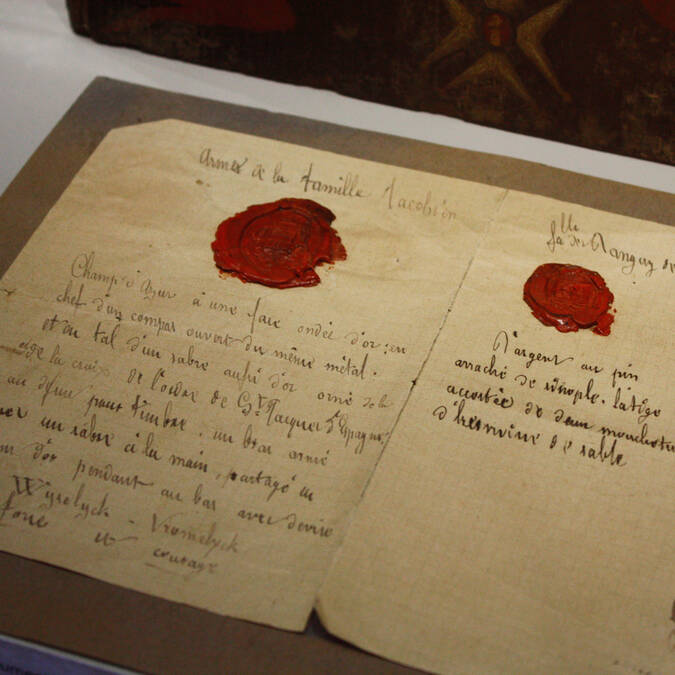 Armes de la famille Jacobsen
Champ d'azur à une face ondée d'or; en
chef d'un compas ouvert du même métal.
et en tal d'un sabre aussi d'or orné de la
croix de l'ordre de St Jacques d'Espagne
au d'une pour timbre, un bras armé
un sabre à la main, partagé en
d'or pendant au bas avec devise
Wyselyck - Vromelyck
et courage
fa de Ranguy de
D'argent au pin
arraché de sinople. la tige
accostée de deux mouchetu
d'hermine de sable